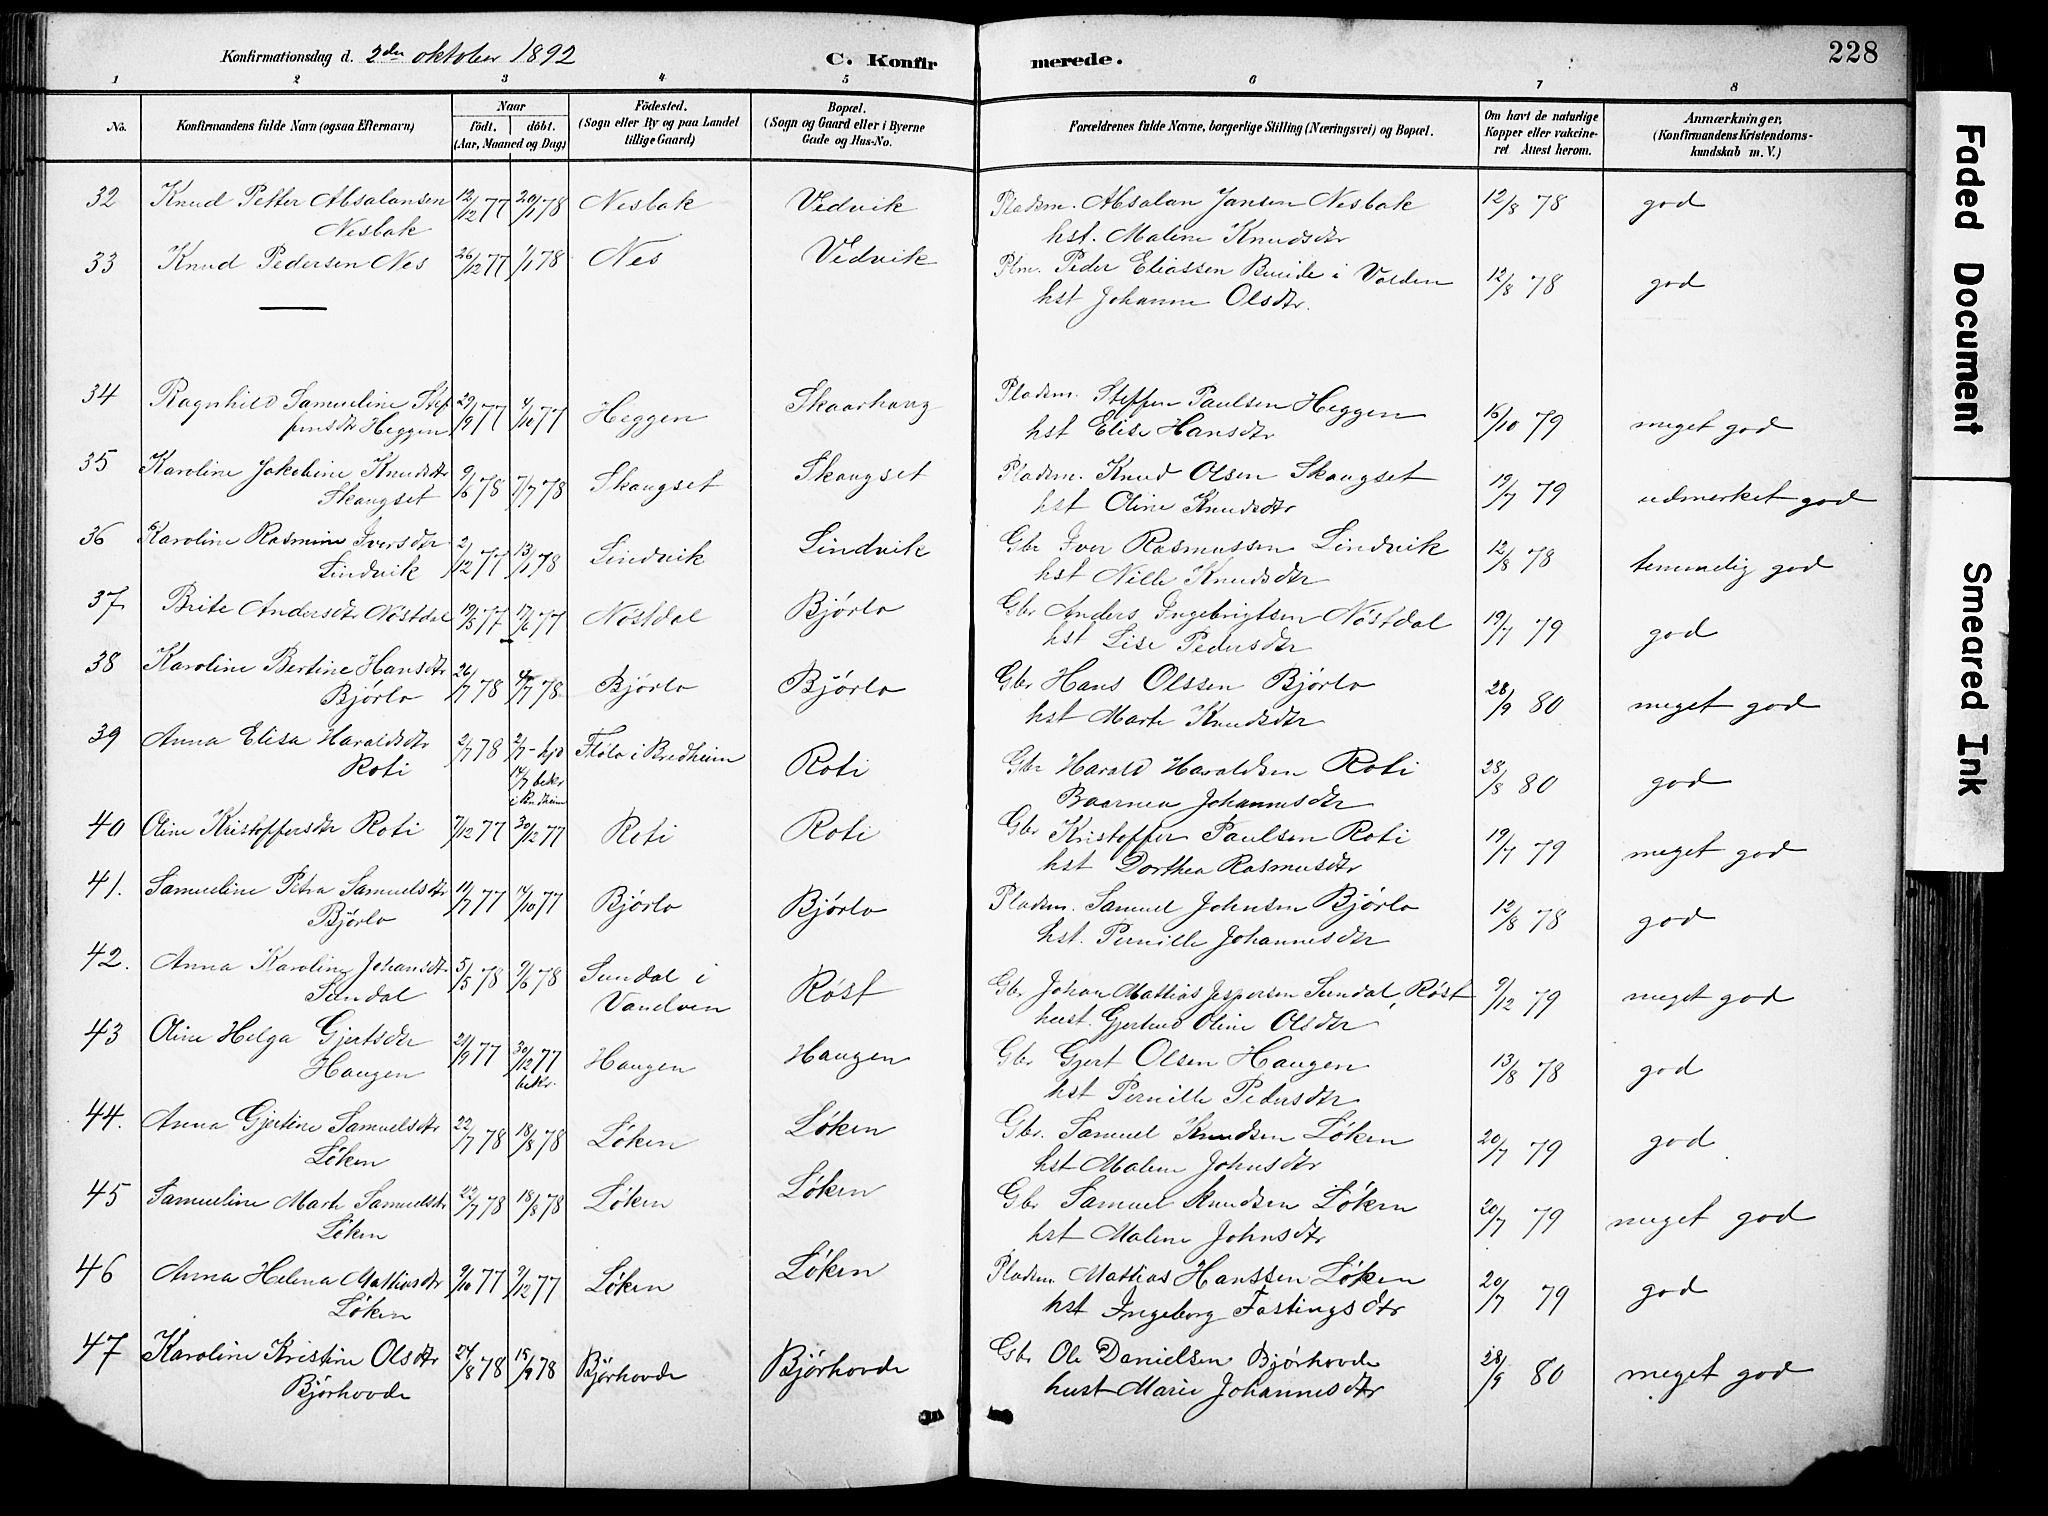 Konfirmationsdag d. 2den oktober 1892
C. Konfirmerede.
228
1 2 3 4 5 6 7 8
No.
Konfirmandens fulde Navn (ogsaa Efternavn)
Naar
født. døbt.
(Aar, Maaned og Dag)
Fødested.
(Sogn eller By og paa Landet
tillige Gaard)
Bopæl.
(Sogn og Gaard eller i Byerne
Gade og Hus-No.
Forældrenes fulde Navne, borgerlige Stilling (Næringsvei) og Bopæl.
Om havt de naturlige
Kopper eller vakcine-
ret Attest herom.
Anmærkninger.
(Konfirmandens Kristendoms-
kundskab m. V.)
32 Knud Petter Absalansen 12/12 77 20/1 78 Nesbak Vedvik Pladsm. Absalan Jansen Nesbak 12/8 78 god
Nesbak hst. Malene Knudsdtr
33 Knud Pedersen Nes 26/12 77 1/1 78 Nes Vedvik Plm. Peder Eliassen Bueide i Volden 12/8 78 god
hst Johanne Olsdtr.
34 Ragnhild Samueline Stef 29/9 77 4/10 77 Heggen Skaarhaug Pladsm. Steffen Paulsen Heggen 16/10 79 meget god
fensdtr Heggen hst Elise Hansdtr
35 Karoline Jakobine Knudsdtr 9/6 78 7/7 78 Skougset Skougset Pladsm. Knud Olsen Skougset 19/7 79 udmerket god
Skougset hst Oline Knudsdtr
36 Karoline Rasmine Iversdtr 2/12 77 13/1 78 Lindvik Lindvik Gbr Iver Rasmussen Lindvik 12/8 78 temmelig god
Lindvik hst Nille Knudsdtr
37. Brite Andersdtr Nøstdal 19/5 77 17/6 77 Nøstdal Bjørlo Gbr Anders Ingebrigtsen Nøstdal 19/7 79 god
hst Lise Pedersdtr
38 Karoline Bertine Hansdtr 26/7 78 /7 78 Bjørlo Bjørlo Gbr Hans Olssen Bjørlo 28/9 80 meget god
Bjørlo hst Marte Knudsdtr
39 Anna Elisa Haraldsdtr 2/7 78 2/7 - hjd Fløla i Bredheim Roti Gbr Harald Haraldsen Roti 28/8 80 god
Roti 14/7 bekr Baarnea Johannesdtr
40 Oline Kristoffersdtr Roti 7/12 77 30/12 77 Roti Roti Gbr Kristoffer Paulsen Roti 19/7 79 meget god
hst Dorthea Rasmusdtr
41. Samueline Petra Samuelsdtr 19/7 77 14/10 77 Bjørlo Bjørlo Pladsm. Samuel Johnsen Bjørlo 12/8 78 god
Bjørlo hst. Pernille Johannesdtr
42. Anna Karoline Johansdtr 5/5 78 9/6 78 Sundal i Røst Gbr Johan Mattias Jespersen Sundal, Røst 9/12 79 meget god
Sundal Vandven hust. Gjertrud Oline Olsdtr
43 Oline Helga Gjertsdtr 20/9 77 30/12 77 Haugen Haugen Gbr Gjert Olsen Haugen 13/8 78 god
Haugen bekr. hst Pernille Pedersdtr
44. Anna Gjertine Samuelsdtr 22/7 78 18/8 78 Løken Løken Gbr. Samuel Knudsen Løken 20/7 79 god
Løken hst Malene Johnsdtr
45 Samueline Marte Samuelsdtr 22/7 78 18/8 78 Løken Løken Gbr Samuel Knudsen Løken 20/7 79 meget god
Løken hst Malene Johnsdtr
46 Anna Helena Mattiasdtr 9/10 77 9/12 77 Løken Løken Pladsm Mattias Hanssen Løken 20/7 79 god
Løken hst Ingeborg Fastingsdtr
47 Karoline Kristine Olsdtr 24/8 78 15/9 78 Bjørhovde Bjørhovde Gbr Ole Danielsen Bjørhovde 28/9 80 meget god
Bjørhovde hust Marie Johannesdtr
Faded Document
Smeared Ink